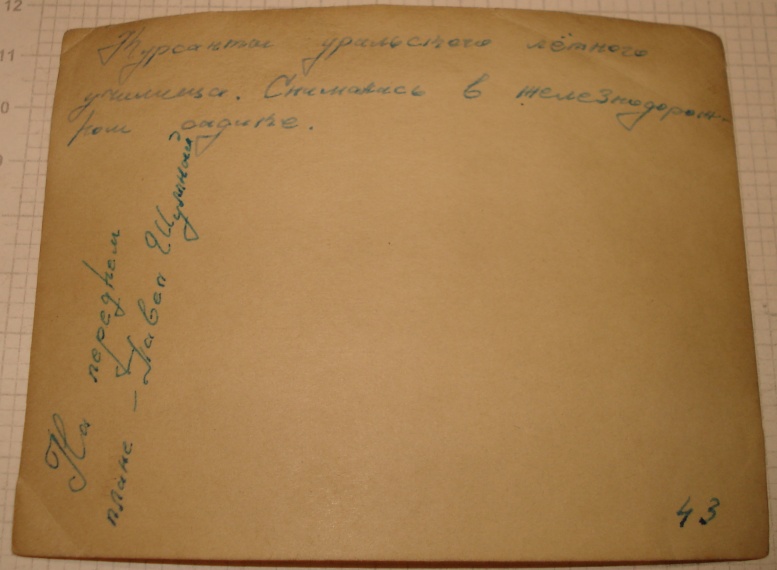 Курсанты уральского лётного
училища. Снимались в железнодорож-
ном садике.
На переднем
плане – Павел Шумный
43
12
11